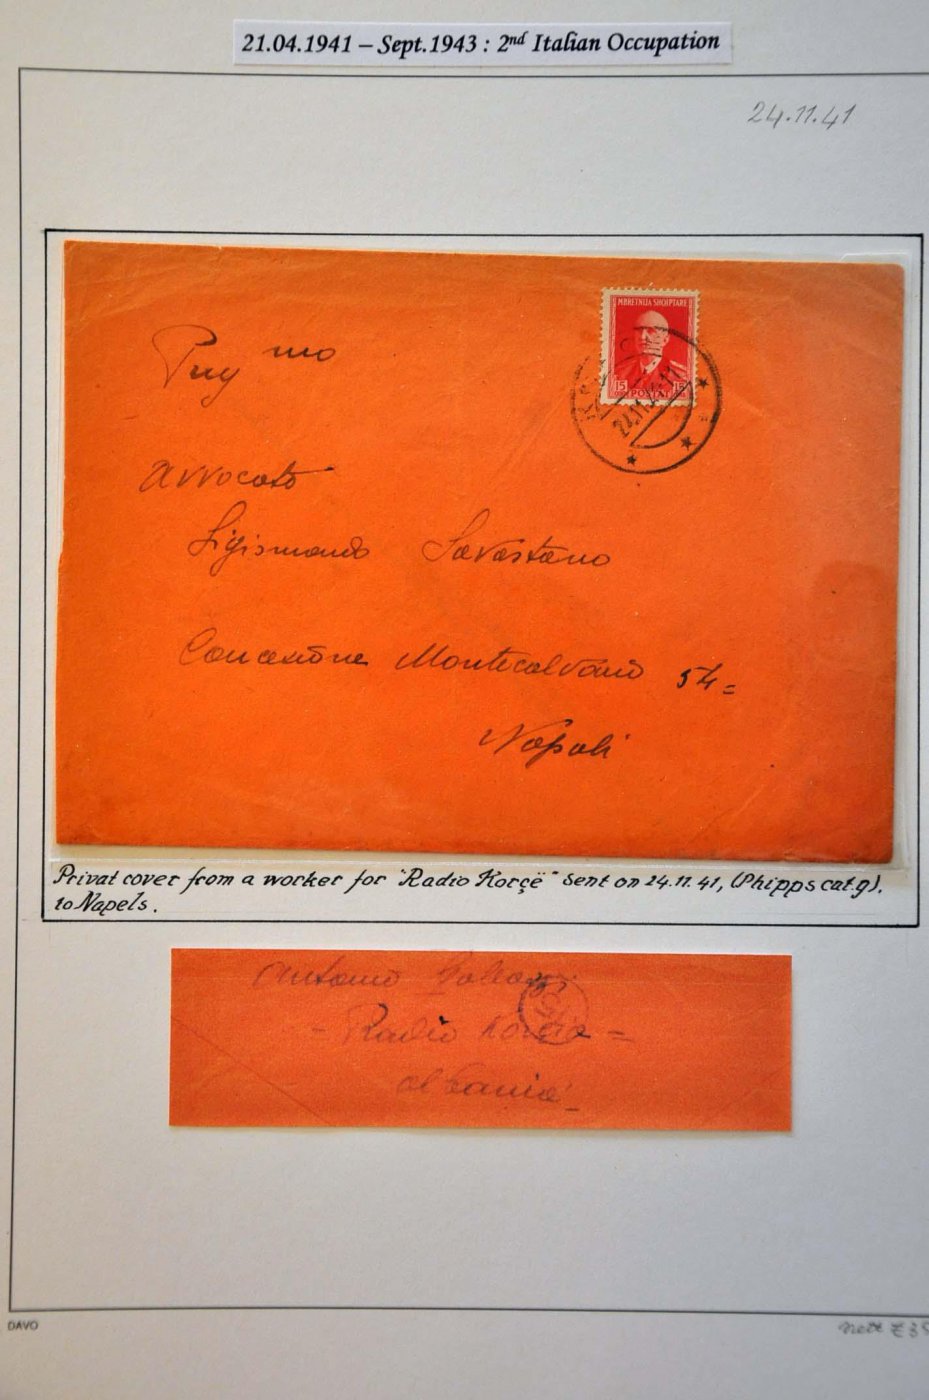 21.04.1941 – Sept.1943 : 2nd Italian Occupation
24.11.41
MBRETNIJA SHQIPTARE
15 POSTAT 15
Avvocato
Sigismondo Savastano
Concezione Montecalvario 54=
Napoli
Privat cover from a worker for "Radio Korçë" sent on 24.11.41, (Phipps cat.g).
to Napels.
Antonio
- Radio Korcia =
Albania
DAVO